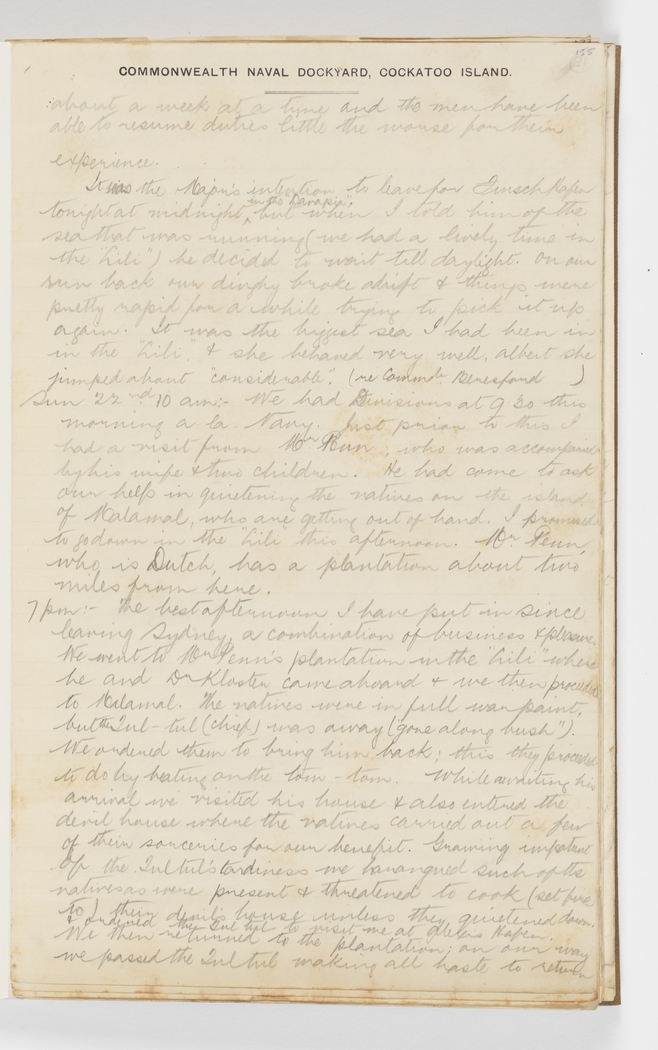 155
COMMONWEALTH NAVAL DOCKYARD, COCKATOO ISLAND.
about a week at a time and the men have been
able to resume duties little the worse for their
experience.
It was the Major's intention to leave for Finsch Hafen
tonight at midnight, in the Parapi, but when I told him of the
sea that was running (we had a lively time in
the "Lili") he decided to wait till daylight. On our
run back our dinghy broke adrift & things were
pretty rapid for a while trying to pick it up
again. It was the biggest sea I had been in
in the "Lili", & she behaved very well, albert she
jumped about "considerable". (re Commdr. Beresford )
Sun 22nd 10 am:- We had Divisions at 9 30 this
morning a la Navy. Just prior to this I
had a visit from Mr Penn, who was accompanied
by his wife & two children. He had come to ask
our help in quietening the natives on the island
of Malamal, who are getting out of hand. I promised
to go down in the "Lili" this afternoon. Mr. Penn,
who is Dutch, has a plantation about two
miles from here.
7 pm:- The best afternoon I have put in since
leaving Sydney, a combination of business & pleasure.
We went to Mr Penn's plantation in the "Lili" where
he and Dr Kloster came aboard & we then proceeded
to Malamal. The natives were in full war paint,
but the Tul-tul (chief) was away ("gone along bush").
We ordered them to bring him back; this they proceeded
to do by beating on the tom-tom. While awaiting his
arrival we visited his house & also entered the
devil house where the natives carried out a few
of their sorceries for our benefit. Growing impatient
of the Tul tul's tardiness we harangued such of the
natives as were present & threatened to cook (set fire
to) their devil's house unless they quietened down.
& ordered the Tul tul to visit me at Hafen.
We then returned to the plantation; on our way
we passed the Tul tul making all haste to return